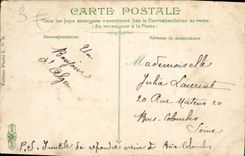 3€
CARTE POSTALE
Tous les pays étrangers n'acceptent pas la Correspondance au recto
(Se renseigner à la Poste)
Correspondance
Adresse du destinataire
Un
Bonjour
d'Alger
Mademoiselle
Julia Laurent
20 Rue
20
Bois-Colombes
Seine
P.S. Inutile de répondre
Bois-Colombes